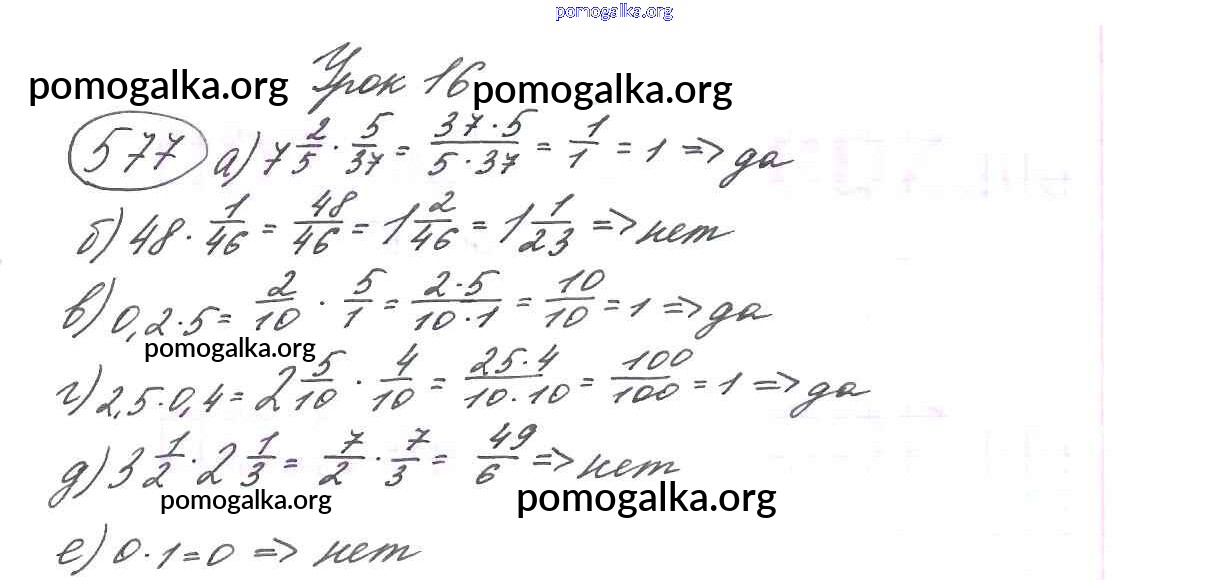 pomogalka.org
pomogalka.org Урок 16 pomogalka.org
577 а) 7 2/5 · 5/37 = 37·5/5·37 = 1/1 = 1 => да
б) 48 · 1/46 = 48/46 = 1 2/46 = 1 1/23 => нет
в) 0,2·5 = 2/10 · 5/1 = 2·5/10·1 = 10/10 = 1 => да
pomogalka.org
г) 2,5·0,4 = 2 5/10 · 4/10 = 25·4/10·10 = 100/100 = 1 => да
д) 3 1/2 · 2 1/3 = 7/2 · 7/3 = 49/6 => нет
pomogalka.org pomogalka.org
е) 0·1=0 => нет